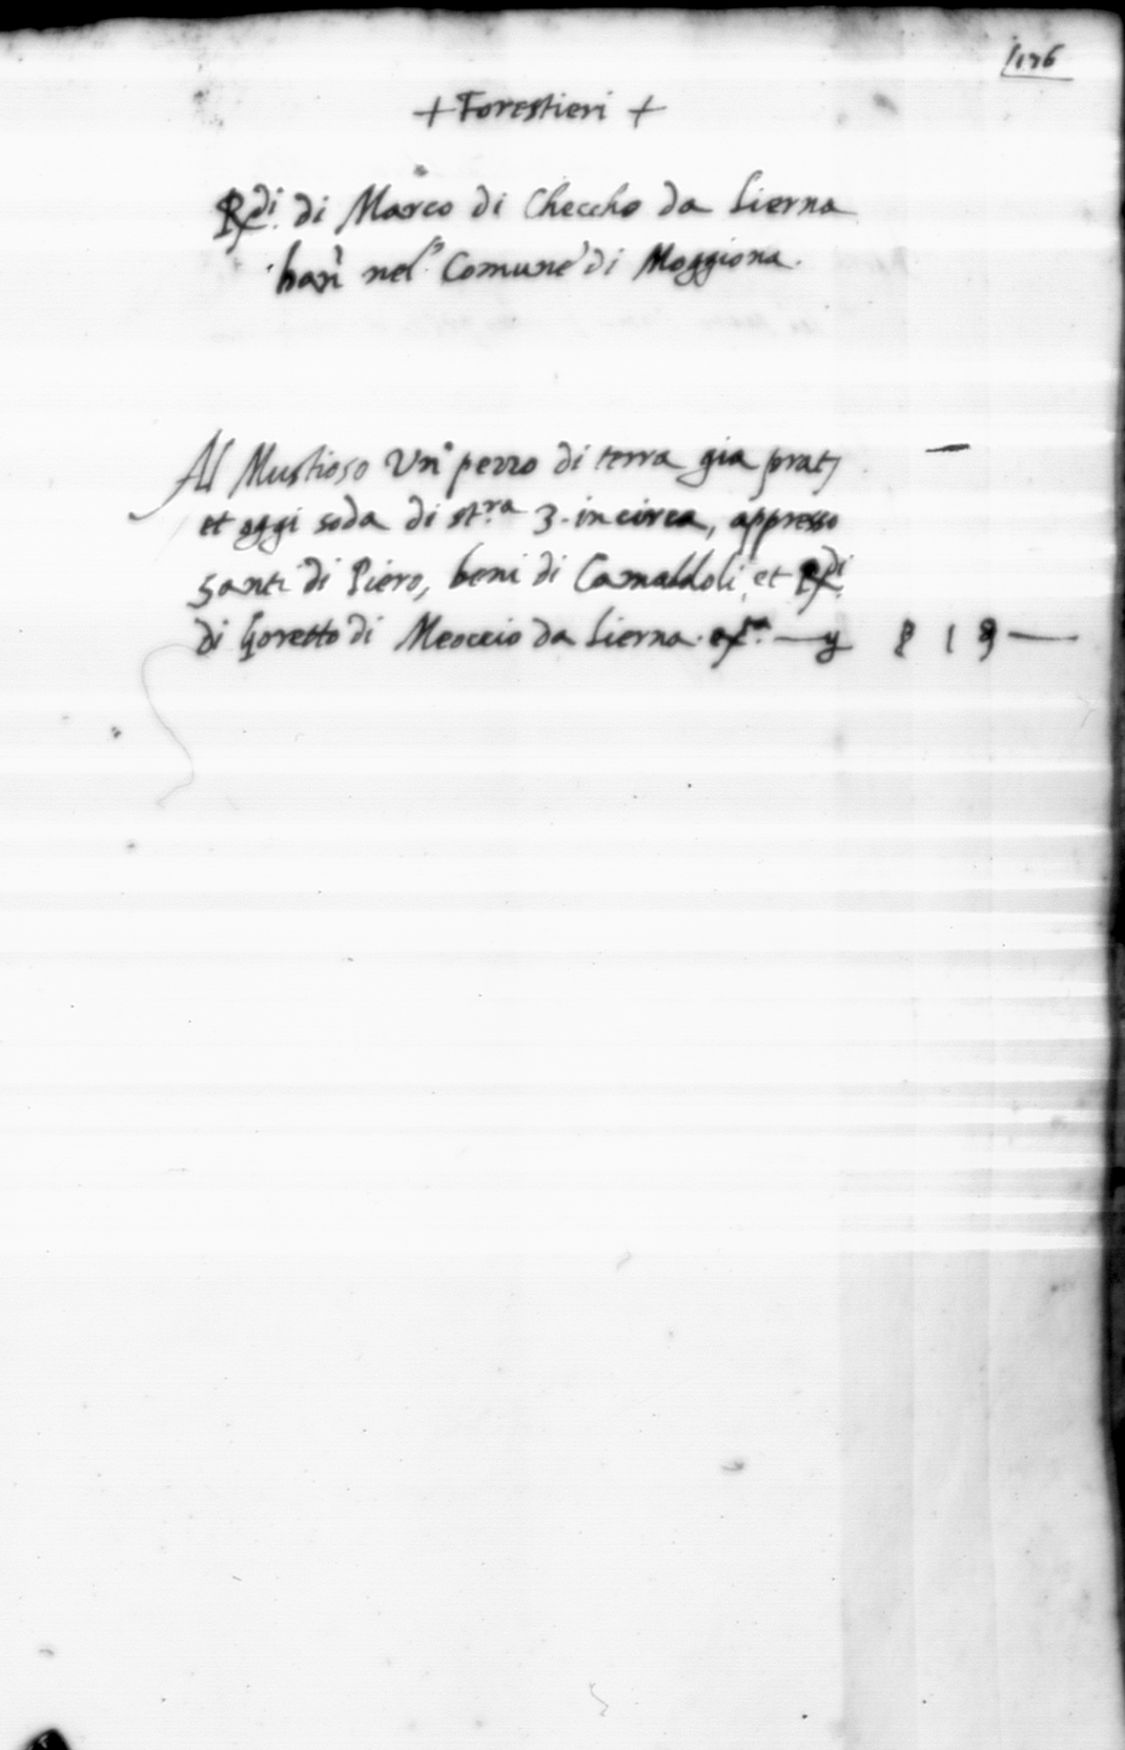 176
+ Forestieri +
Rdi. di Marco di Checcho da Lierna
hanˉ nel Comune di Moggiona.
Al Mustioso Unº pezzo di terra gia prati
et oggi soda di st.ra 3. in circa, appresso
Santi di Piero, beni di Camaldoli, et Rdi.
di Goretto di Meoccio da Lierna. — 8 1 9 —